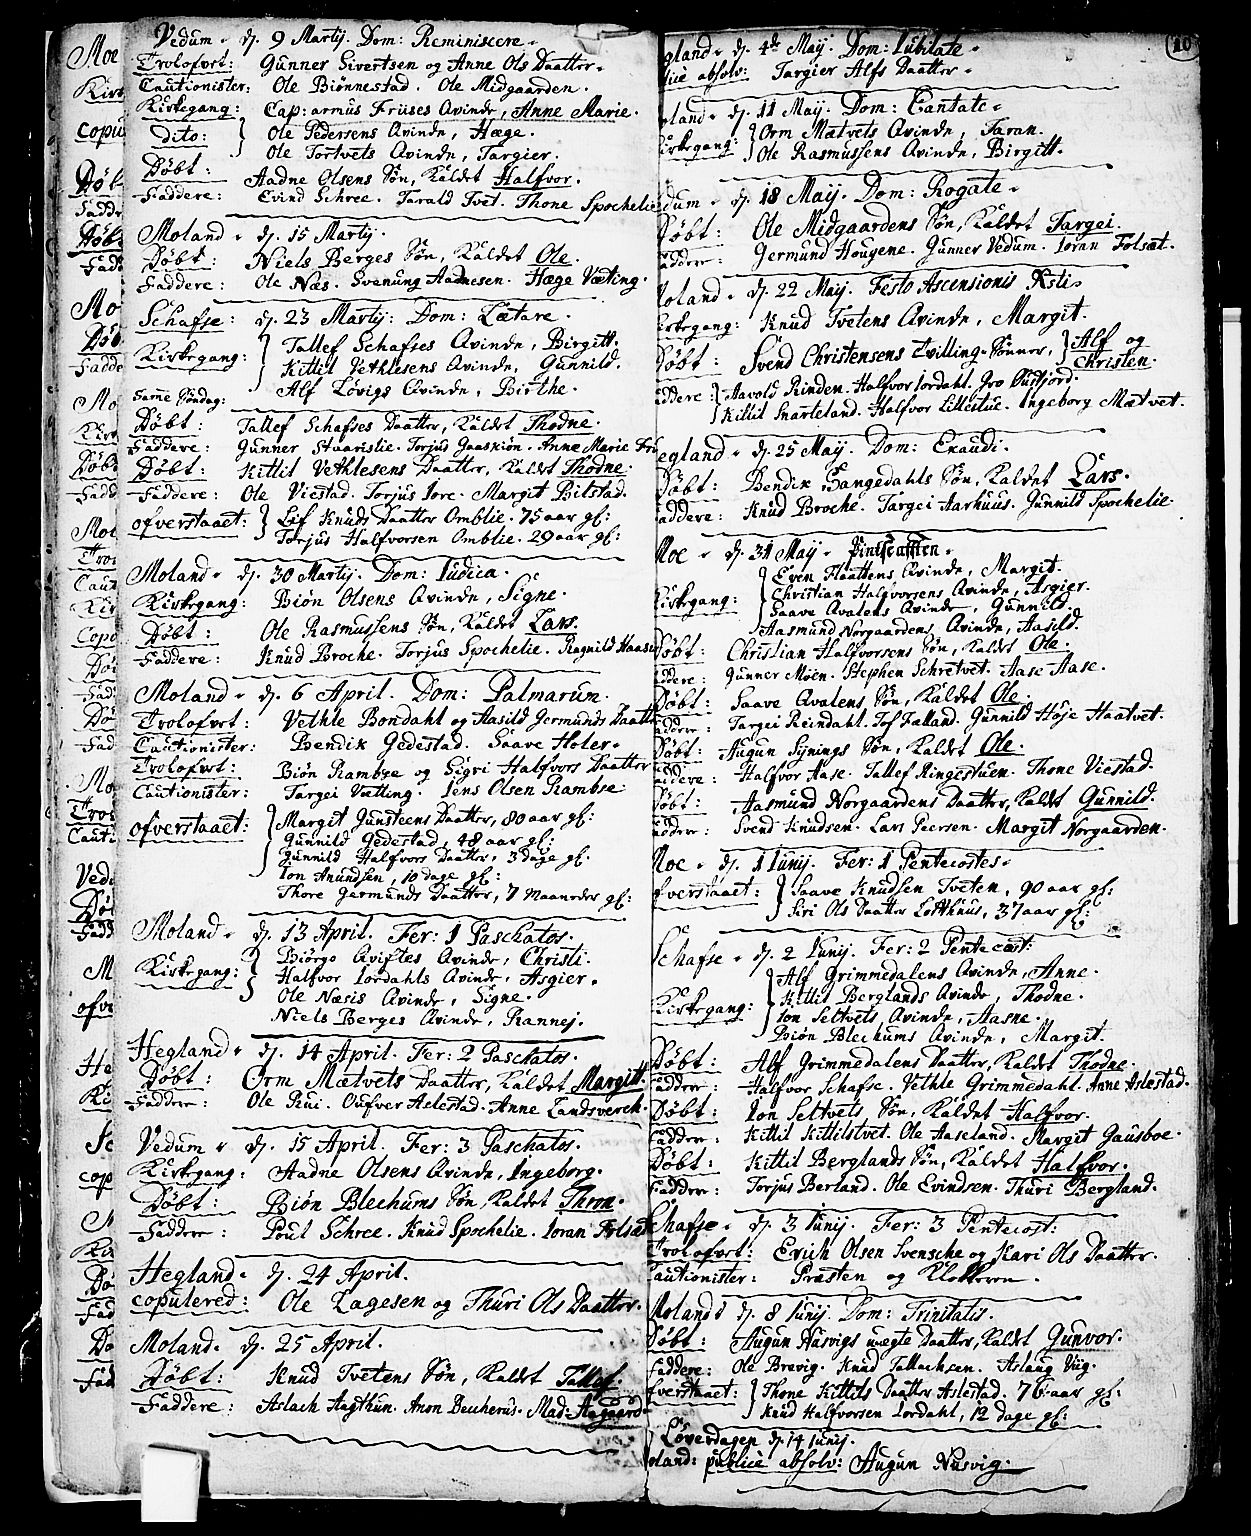 Vedum - dj. 9 Martij. Dom: Reminiscere -
Trolofvet: Gunner Sivertsen og Anne Ols Daatter -
Cautionister: Ole Biönnestad. Ole Midgaarden.
Kirkegang: Cap: armus Friises Qvinde, Anne Marie.
dito: Ole Pedersens Qvinde, Hæge.
Ole Tortvets Qvinde, Targier.
Döbt: Aadne Olsens Sön, Kaldet Halfvor.
Faddere: Evind Schree. Tarald Tvet. Thone Spochelie
Moland - dj. 15 Martij.
Döbt: Niels Berges Sön, Kaldet Ole.
Faddere: Ole Næs. Svenung Aadnesen. Hæge Vætting.
Schafse: dj. 23 Martij: Dom: Lætare.
Kirkegang: Tallef Schafses Qvinde, Birgitt.
Kittil Vethlesens Qvinde, Gunnild.
Alf Lövigs Qvinde, Birthe.
Samme Söndag:
Döbt: Tallef Schafses Daatter, Kaldet Thodne.
Faddere: Gunner Staarislie. Torjus Gaaskiön. Anne Marie Fri
Döbt: Kittil Vethlesens Daatter, Kaldet Thodne.
Faddere: Ole Viestad. Torjus Iore. Margit Bilstad.
ofverstaaet: Lif Knuds Daatter Omblie. 75 aar gl:
Torjus Halfvorsen Omblie. 29 aar gl:
Moland - dj. 30 Martij. Dom: Iudica.
Kirkegang: Biön Olsens Qvinde, Signe.
Döbt: Ole Rasmussens Sön, Kaldet Lars.
Faddere: Knud Broche. Torjus Spochelie. Ragnild Haase
Moland - dj. 6 April. Dom: Palmarum.
Trolofvet: Vethle Bondahl og Aasild Germunds Daatter
Cautionister: Bendik Gedestad. Saave Holer.
Trolofvet: Biön Rambse og Sigri Halfvors Daatter
Cautionister: Targei Vætting. Iens Olsen Rambse
ofverstaaet: Margit Gunsteens Daatter, 80 aar gl:
Gunnild Gedestad, 48 aar gl:
Gunnild Halfvors Daatter, 3 dage gl:
Ion Anundsen, 10 dage gl:
Thore Germunds Daatter, 7 Maaneder gl:
Moland - dj. 13 April. Fer: 1 Paschatos.
Kirkegang: Biörgo Qvistes Qvinde, Christi.
Halfvor Iordahls Qvinde, Asgier.
Ole Næsis Qvinde, Signe.
Niels Berges Qvinde, Rannej.
Hegland - dj. 14 April. Fer: 2 Paschatos.
Döbt: Orm Mætvets Daatter, Kaldet Margitt.
Faddere: Ole Rui. Oufver Aslestad. Anne Landsverck.
Vedum - dj. 15 April. Fer: 3 Paschatos.
Kirkegang: Aadne Olsens Qvinde, Ingeborg.
Döbt: Biön Blechums Sön, Kaldet Thron.
Faddere: Poul Schree. Knud Spochelie. Ioran Folsæt
Hegland - dj. 24 April.
copulered: Ole Lagesen og Thuri Ols Daatter.
Moland - dj. 25 April.
Döbt: Knud Tvetens Sön, Kaldet Tallef.
Faddere: Aslach Aagthun. Anon Beucherus. Mad: Aagaard
10
gland - dj. 4de Maij. Dom: Iubilate -
lice absolv: Targier Alfs Daatter -
oland - dj. 11 Maij. Dom: Cantate -
irkegang: Orm Mætvets Qvinde, Taran.
Ole Rasmussens Qvinde, Birgitt.
dum - dj. 18 Maij. Dom: Rogate -
Döbt: Ole Midgaardens Sön, Kaldet Targei.
addere: Germund Hougene. Gunner Vedum. Ioran Folsæt.
oland - dj. 22 Maij. Festo Ascensionis Xsti -
irkegang: Knud Tvetens Qvinde, Margit.
Döbt: Svend Christensens Tvilling-Sönner, Alf og
Christen.
addere: Aavold Rinden. Halfvor Iordahl. Gro Öusfjord.
Kittil Snarteland. Halfvor Lillestue. Ingeborg Mætvet.
egland - dj. 25 Maij. Dom: Exaudi.
Döbt: Bendix Bangedahls Sön, Kaldet Lars.
addere: Knud Broche. Targei Aarhuus. Gunnild Spochelie.
Moe - dj. 31 Maij - Pintseaften -
Kirkegang: Even Flaattens Qvinde, Margit.
Christian Halfvorsens Qvinde, Asgier.
Saave Qvalens Qvinde, Gunnild.
Aasmund Norgaardens Qvinde, Aasild.
Döbt: Christian Halfvorsens Sön, Kaldet Ole.
addere: Gunner Möen. Stephen Schretvet. Aase Aase.
Döbt: Saave Qvalens Sön, Kaldet Ole.
addere: Targei Reindahl. Tof Falland. Gunnild Höje Haatvet.
Döbt: Augun Synings Sön, Kaldet Ole.
addere: Halfvor Aase. Tallef Ringestuen. Thone Viestad.
Döbt: Aasmund Norgaardens Daatter, Kaldet Gunnild.
addere: Svend Knudsen. Lars Peersen. Margit Norgaarden.
Moe - dj. 1 Iunij. Fer: 1 Pentecostes -
fverstaaet: Saave Knudsen Tveten, 90 aar gl:
Siri Ols Daatter Lofthuus, 37 aar gl:
Schafse - dj. 2 Iunij. Fer: 2 Pentecost:
Kirkegang: Alf Grimmedalens Qvinde, Anne.
Kittil Berglands Qvinde, Thodne.
Ion Seltvets Qvinde, Aasne.
Biön Blechums Qvinde, Margit.
Döbt: Alf Grimmedalens Daatter, Kaldet Thodne.
addere: Halfvor Schafse. Vethle Grimmedahl. Anne Aslestad.
Döbt: Ion Seltvets Sön, Kaldet Halfvor.
Faddere: Kittil Kittilstvet. Ole Aaseland. Margit Gausboe.
Döbt: Kittil Berglands Sön, Kaldet Halfvor.
Faddere: Torjus Berland. Ole Evindsen. Thuri Bergland.
Schafse - dj. 3 Iunij. Fer: 3 Pentecost:
Trolofvet: Erich Olsen Svensche og Kari Ols Daatter.
Cautionister: Præsten og Klokkeren.
Moland: dj. 8 Iunij. Dom: Trinitatis.
Döbt: Augun Nusvigs uægte Daatter, Kaldet Gunvor.
Faddere: Ole Brevig. Knud Tallachsen. Aslaug Viig.
fverstaaet: Thone Kittils Daatter Aslestad. 76 aar gl:
Knud Halfvorsen Iordahl, 12 dage gl:
Löverdagen dj. 14 Iunij.
oland: publicè absolv: Augun Nusvig.